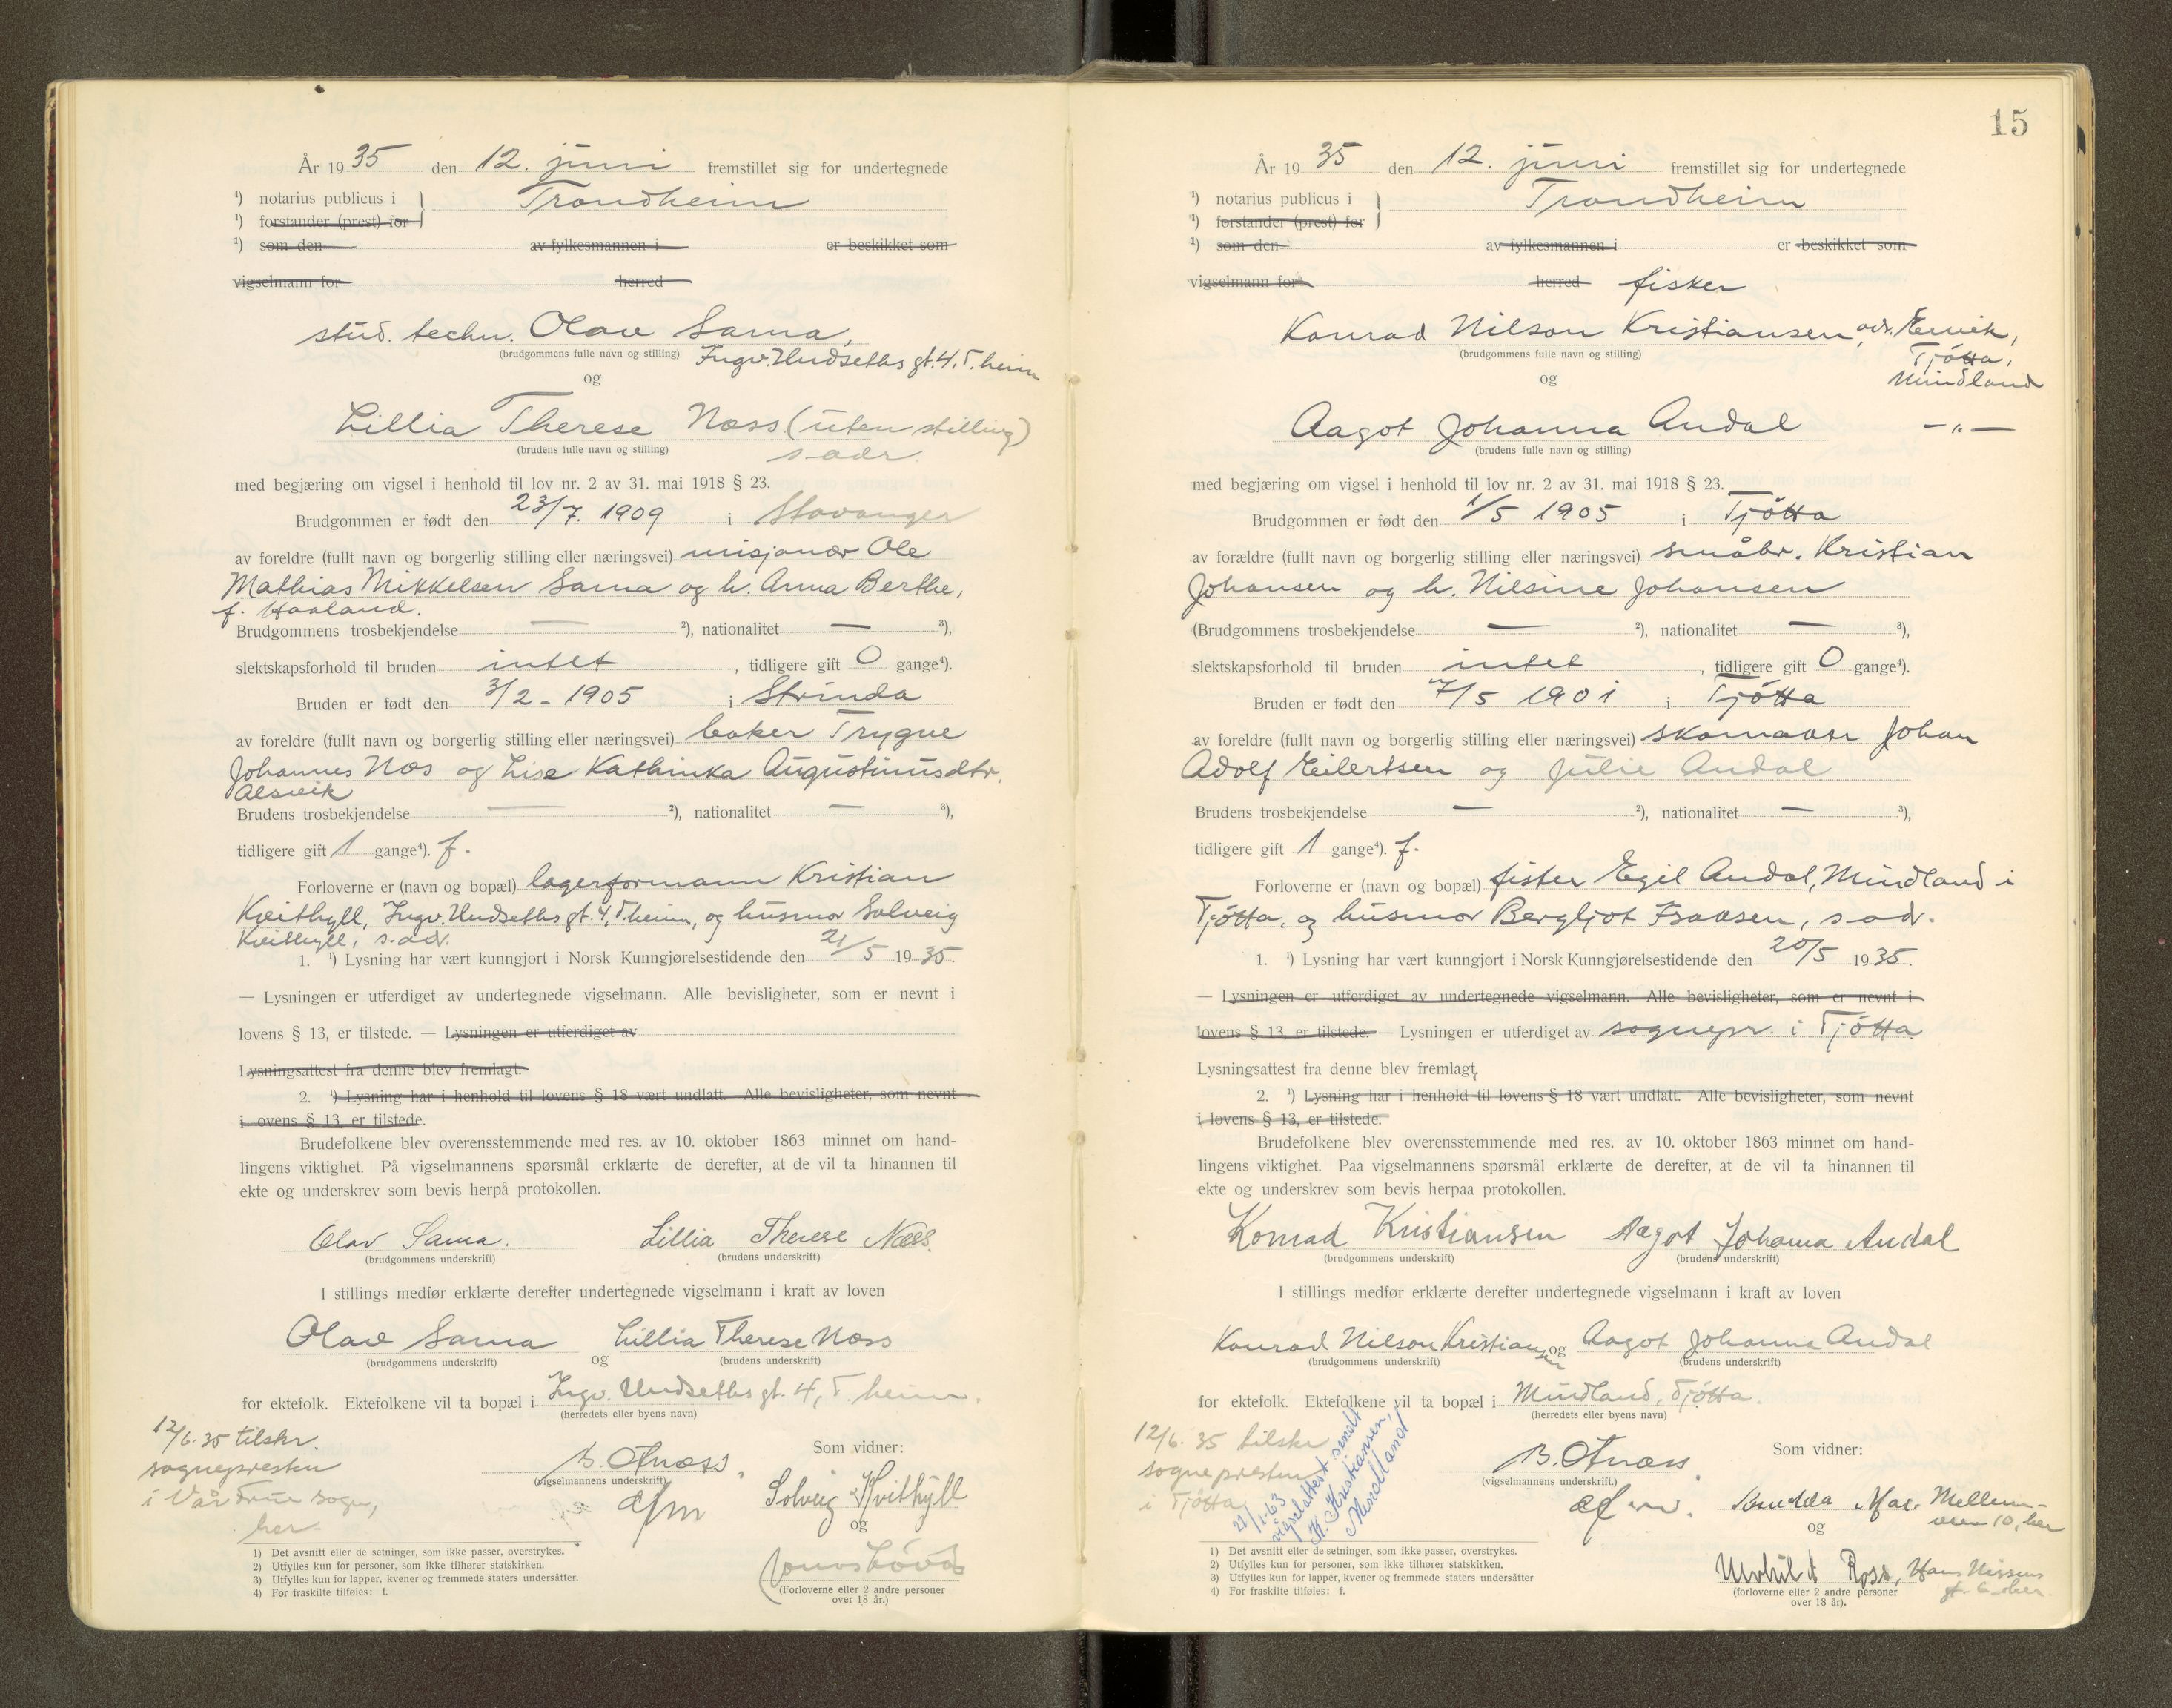 År 1935 den 12. juni fremstillet sig for undertegnede
¹) notarius publicus i } Trondheim
¹) forstander (prest) for
¹) som den av fylkesmannen i er beskikket som
vigselmann for herred
stud. techn. Olav Sama,
(brudgommens fulle navn og stilling) Ingv. Undseths gt. 4, T.heim
og
Lillia Therese Næss (uten stilling)
(brudens fulle navn og stilling) s adr.
med begjæring om vigsel i henhold til lov nr. 2 av 31. mai 1918 § 23.
Brudgommen er født den 23/7. 1909 i Stavanger
av foreldre (fullt navn og borgerlig stilling eller næringsvei) misjonær Ole
Mathias Mikkelsen Sama og h. Anna Berthe,
f. Haaland.
Brudgommens trosbekjendelse — ²), nationalitet — ³),
slektskapsforhold til bruden intet, tidligere gift 0 gange⁴).
Bruden er født den 3/2 - 1905 i Strinda
av foreldre (fullt navn og borgerlig stilling eller næringsvei) baker Trygve
Johannes Næs og Lise Kathinka Augustinusdtr.
Alsvik
Brudens trosbekjendelse — ²), nationalitet — ³),
tidligere gift 1 gange⁴). f.
Forloverne er (navn og bopæl) lagerformann Kristian
Kvithyll, Ingv. Undseths gt. 4, T.heim, og husmor Solveig
Kvithyll, s. adr.
1. ¹) Lysning har vært kunngjort i Norsk Kunngjørelsestidende den 21/5 1935.
— Lysningen er utferdiget av undertegnede vigselmann. Alle bevisligheter, som er nevnt i
lovens § 13, er tilstede. — Lysningen er utferdiget av
Lysningsattest fra denne blev fremlagt.
2. ¹) Lysning har i henhold til lovens § 18 vært undlatt. Alle bevisligheter, som nevnt
i ovens § 13, er tilstede.
Brudefolkene blev overensstemmende med res. av 10. oktober 1863 minnet om hand-
lingens viktighet. På vigselmannens spørsmål erklærte de derefter, at de vil ta hinannen til
ekte og underskrev som bevis herpå protokollen.
Olav Sama. Lillia Therese Næss.
(brudgommens underskrift) (brudens underskrift)
I stillings medfør erklærte derefter undertegnede vigselmann i kraft av loven
Olav Sama og Lillia Therese Næss
(brudgommens underskrift) (brudens underskrift)
for ektefolk. Ektefolkene vil ta bopæl i Ingv. Undseths gt. 4, T.heim.
(herredets eller byens navn)
12/6. 35 tilskr.
sognepresten
i Vår Frue sogn,
her.
(vigselmannens underskrift)
Som vidner:
Solveig Kvithyll
og
(Forloverne eller 2 andre personer
over 18 år.)
1) Det avsnitt eller de setninger, som ikke passer, overstrykes.
2) Utfylles kun for personer, som ikke tilhører statskirken.
3) Utfylles kun for lapper, kvener og fremmede staters undersåtter.
4) For fraskilte tilføies: f.
15
År 1935 den 12. juni fremstillet sig for undertegnede
¹) notarius publicus i } Trondheim
¹) forstander (prest) for
¹) som den av fylkesmannen i er beskikket som
vigselmann for herred fisker
Konrad Nilson Kristiansen, adr. Ervik,
(brudgommens fulle navn og stilling) Tjötta,
og Mindland
Aagot Johanna Andal —"—
(brudens fulle navn og stilling)
med begjæring om vigsel i henhold til lov nr. 2 av 31. mai 1918 § 23.
Brudgommen er født den 1/5 1905 i Tjötta
av forældre (fullt navn og borgerlig stilling eller næringsvei) småbr. Kristian
Johansen og h. Nilsine Johansen
(Brudgommens trosbekjendelse — ²), nationalitet — ³),
slektskapsforhold til bruden intet, tidligere gift 0 gange⁴).
Bruden er født den 7/5 1901 i Tjötta
av foreldre (fullt navn og borgerlig stilling eller næringsvei) skomaker Johan
Adolf Eilertsen og Julie Andal
Brudens trosbekjendelse — ²), nationalitet — ³),
tidligere gift 1 gange⁴). f.
Forloverne er (navn og bopæl) fisker Egil Andal, Mindland i
Tjötta, og husmor Bergljot Isaksen, s. adr.
1. ¹) Lysning har vært kunngjort i Norsk Kunngjørelsestidende den 20/5 1935.
— Lysningen er utferdiget av undertegnede vigselmann. Alle bevisligheter, som er nevnt i
lovens § 13, er tilstede. — Lysningen er utferdiget av sognepr. i Tjötta
Lysningsattest fra denne blev fremlagt.
2. ¹) Lysning har i henhold til lovens § 18 vært undlatt. Alle bevisligheter, som nevnt
i lovens § 13, er tilstede.
Brudefolkene blev overensstemmende med res. av 10. oktober 1863 minnet om hand-
lingens viktighet. Paa vigselmannens spørsmål erklærte de derefter, at de vil ta hinannen til
ekte og underskrev som bevis herpaa protokollen.
Konrad Kristiansen Aagot Johanna Andal
(brudgommens underskrift) (brudens underskrift)
I stillings medfør erklærte derefter undertegnede vigselmann i kraft av loven
Konrad Nilson Kristiansen og Aagot Johanna Andal
(brudgommens underskrift) (brudens underskrift)
for ektefolk. Ektefolkene vil ta bopæl i Mindland, Tjötta.
(herredets eller byens navn)
12/6. 35 tilskr
sognepresten
i Tjötta
21/1-63
vigselattest sendt
K. Kristiansen,
Mindland
(vigselmannens underskrift.)
Som vidner:
Mellem-
veien 10, her
og
Ross, Hans Nissens
gt. 6 her.
(forloverne eller 2 andre personer
over 18 år).
1) Det avsnitt eller de setninger, som ikke passer, overstrykes.
2) Utfylles kun for personer, som ikke tilhører statskirken.
3) Utfylles kun for lapper, kvener og fremmede staters undersåtter
4) For fraskilte tilføies: f.